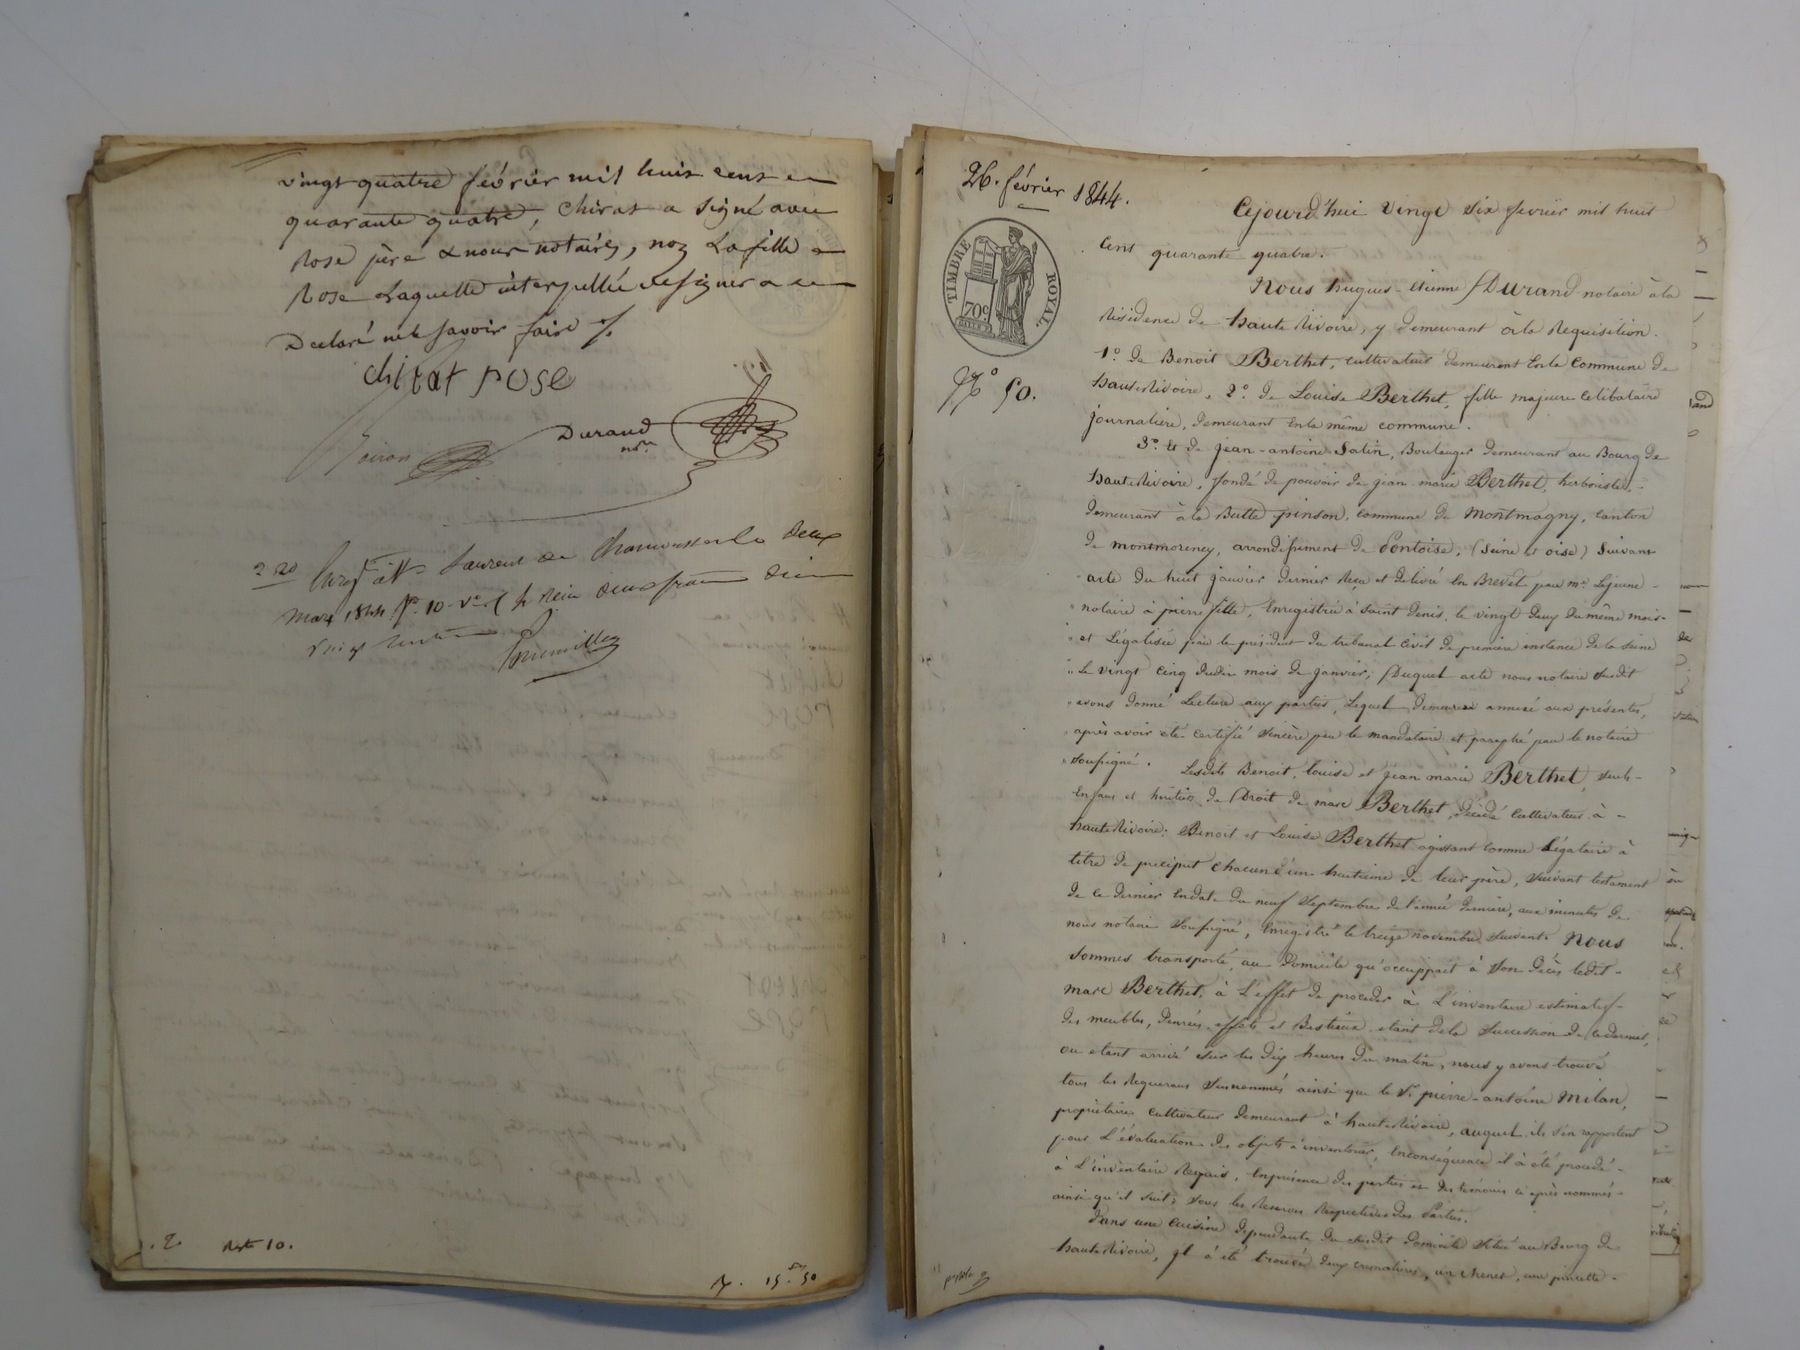 vingt quatre février mil huit cent
quarante quatre, chirat a signé avec
Rose père & nous notaire, non La fille
Rose Laquelle interpellée de signer a
Declaré ne le savoir faire
chirat rose
Durand
nre
2 20 Enregé à St Laurent de Chamousset le deux
mars 1844 fo 10 vo reçu deux francs
vingt centimes
Reste 10.
15 50
26. février 1844.
TIMBRE ROYAL.
70c
No 50.
Cejourd'hui vingt six fevrier mil huit
cent quarante quatre.
Nous hugues-etienne Durand notaire à la
Residence de haute Rivoire, y demeurant à la Requisition.
1o. de Benoit Berthet, cultivateur demeurant en la commune de
haute Rivoire, 2o. de Louise Berthet, fille majeure celibataire
journaliere, demeurant en la même commune.
3o. et de jean-antoine Salin, Boulanger demeurant au Bourg de
haute Rivoire, fondé de pouvoir de jean marie Berthet, herboriste,
demeurant à la Butte pinson, commune de Montmagny, canton
de montmorency, arrondissement de Pontoise, (Seine et oise) suivant
acte du huit janvier dernier reçu et délivré en Brevet par me. Lejeune
notaire à pierrefitte, enregistré à Saint denis, le vingt deux du même mois
et Légalisé par le président du tribunal civil de premiere instance de la Seine
Le vingt cinq dudit mois de janvier; Duquel acte nous notaire susdit
avons donné Lecture aux parties, Lequel demeure annexé aux présentes,
après avoir été certifié sincère par le mandataire et paraphé par le notaire
soussigné. Lesdits Benoit, Louise et jean marie Berthet, seuls
enfans et heritiers de Droit de marc Berthet, décédé cultivateur à
haute Rivoire: Benoit et Louise Berthet agissant comme Légataire à
titre de preciput chacun d'un huitieme de leur père, suivant testament
de ce dernier en date du neuf Septembre de l'année derniere, aux minutes de
nous notaire soussigné, enregistré le treize novembre suivant. Nous
sommes transporté, au domicile qu'occuppait à son Décès ledit
marc Berthet, à L'effet de proceder à L'inventaire estimatif
des meubles, denrées, effets et Bestiaux etant de la succession de ce dernier,
ou etant arrivé sur les dix heures du matin, nous y avons trouvé
tous les Requerans susnommés ainsi que le Sr. pierre-antoine Milan,
propriétaire cultivateur demeurant à haute Rivoire, auquel ils s'en rapportent
pour L'évaluation des objets à inventorier, en conséquence il à été procédé
à L'inventaire Requis, en présence des parties et des témoins ci après nommés
ainsi qu'il suit; sous les Reserves Respectives des Parties.
Dans une cuisine dependante du susdit domicile situé au Bourg de
haute Rivoire, il à été trouvé deux cremaliere, un chenet, une pincette